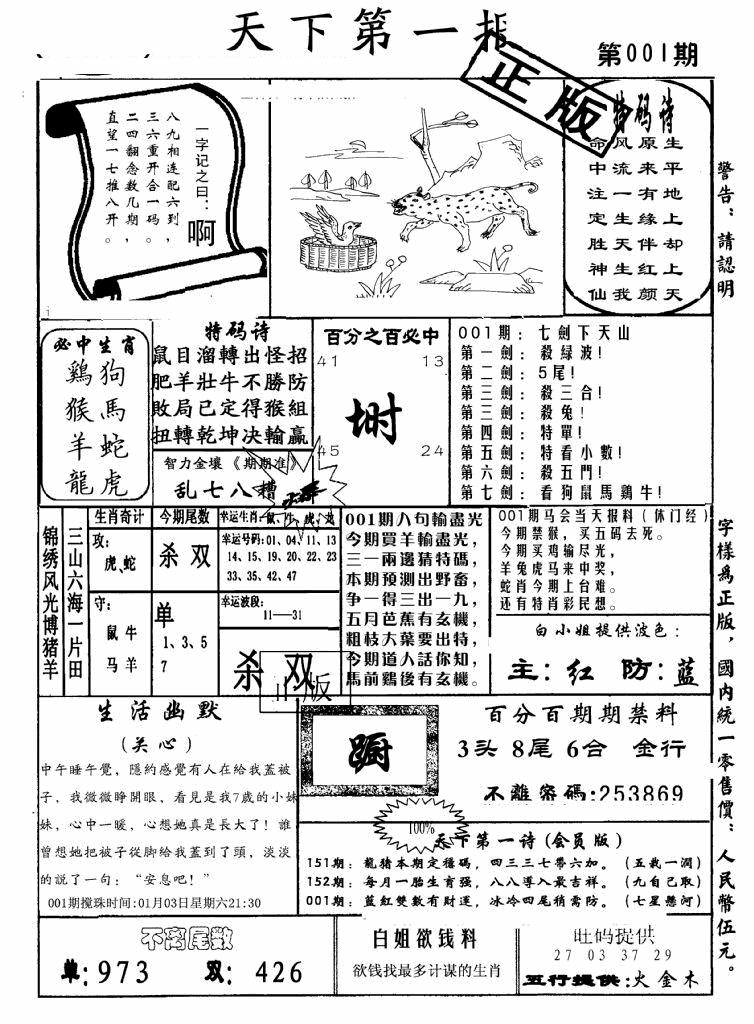 天下第一报
第001期
正版
一字记之曰：
啊
八九相连配六到，
三六重开合一码。
二四翻念数几期，
直望一七推八开。
特码诗
生平地上却上天
原来有缘伴红颜
风流一生天生我
命中注定胜神仙
警告：請認明
字樣爲正版，國内統一零售價：人民幣伍元。
必中生肖
鷄狗
猴馬
羊蛇
龍虎
特码诗
鼠目溜轉出怪招
肥羊壯牛不勝防
敗局已定得猴組
扭轉乾坤决輸贏
智力金壤《期期准》
乱七八糟
百分之百必中
41 13
45 24
001期：七劍下天山
第一劍：殺緑波！
第二劍：5尾！
第三劍：殺三合！
第三劍：殺兔！
第四劍：特單！
第五劍：特看小數！
第六劍：殺五門！
第七劍：看狗鼠馬鷄牛！
三山六海一片田
锦绣风光博猪羊
生肖奇计
攻：
虎、蛇
守：
鼠牛
马羊
今期尾数
杀双
单
1、3、5
7
幸运生肖：鼠、牛、虎、龙
幸运号码：01、04、11、13
14、15、19、20、22、23
33、35、42、47
幸运波段：
11—31
杀双
正版
001期八句輸盡光
今期買羊輸盡光，
三一兩邊猜特碼，
本期预测出野畜，
争一得三出一九，
五月芭蕉有玄機。
粗枝大葉要出特，
今期道人話你知，
馬前鷄後有玄機。
001期马会当天报料（休门经）
今期禁猴，买五码去死。
今期买鸡输尽光，
羊兔虎马来中奖，
蛇肖今期上台难。
还有特肖彩民想。
白小姐提供波色：
主：红 防：蓝
生活幽默
（关心）
中午睡午覺，隱約感覺有人在給我蓋被
子，我微微睁開眼，看見是我7歲的小妹
妹，心中一暖，心想她真是長大了！誰
曾想她把被子從脚给我蓋到了頭，淡淡
的説了一句：“安息吧！”
001期搅珠时间:01月03日星期六21:30
蹰
百分百期期禁料
3头8尾6合 金行
不離密碼:253869
100%
天下第一诗(会员版)
151期：龍猪本期定穩碼，四三三七帶六加。（五栽一澗）
152期：每月一胎生肖强，八八導入最吉祥。（九自己取）
001期：藍紅雙數有財運，冰冷四尾稍需防。（七星懸河）
不离尾数
单:973 双:426
白姐欲钱料
欲钱找最多计谋的生肖
旺码提供
27 03 37 29
五行提供:火金木